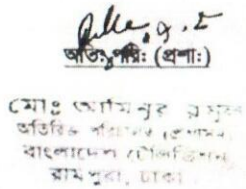 অতিঃ পরিঃ (প্রশাঃ)
মোঃ আমিনুর রহমান
অতিরিক্ত পরিচালক (প্রশাসন)
বাংলাদেশ টেলিভিশন
রামপুরা, ঢাকা